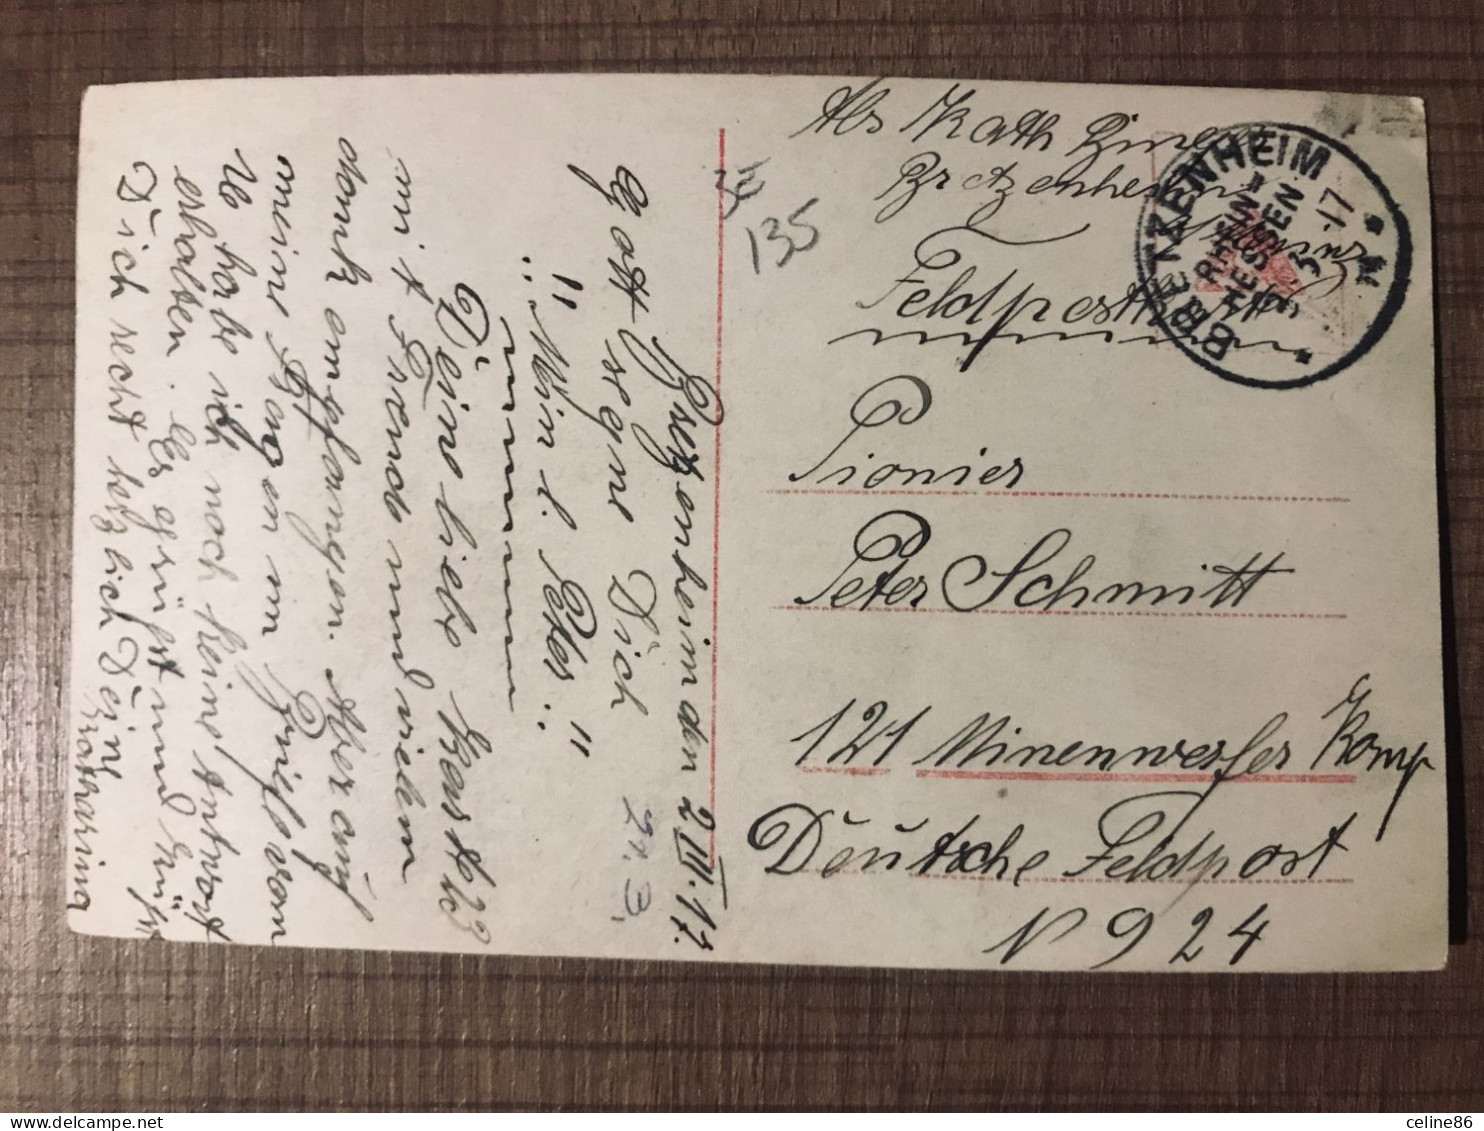 Bretzenheim den 2. III. 17.
Gott segne Dich
21. 3.
"..Mein l. Peter.."
Deine liebe Karte N 23
mit Freude und vielem
dank empfangen. Aber auf
meine Fragen im Brief vom
16 habe ich noch keine Antwort
erhalten. Es grüßt und küßt
Dich recht herzlich Deine
Katharina
34
135
Abs Kath
Bretzenheim
Mainz
Feldpostk
BRETZENHEIM
RHEIN-
HESSEN
3. 17
Pionier
Peter Schmitt
121 Minenwerfer Komp
Deutsche Feldpost
N 924
celine86